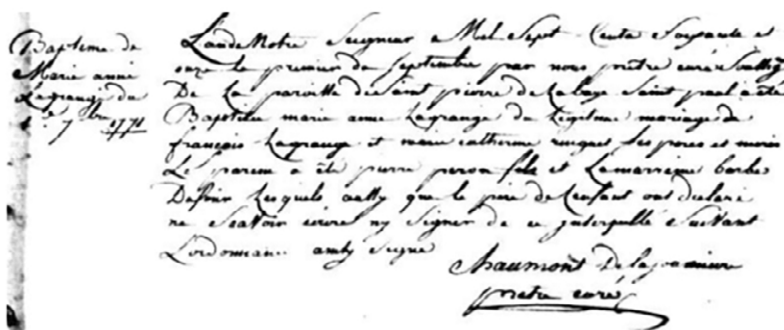 Bapteme de
Marie anne
Lagrange du
1.er 7bre 1771
L'an de Notre Seigneur Mil Sept Cents Soixante et
onze le premier de Septembre par nous prêtre curé Soussig
De la paroisse de Saint pierre de la baye Saint paul a été
Baptisee marie anne Lagrange du Legitime mariage de
françois Lagrange et marie catherine ses peres et meres
Le parein a été pierre peron fils et La marreine barbe
Lesquels aussy que le pere de L'enfant ont declaré
ne Scavoir ecrire ny Signer de ce Interpellé Suivant
L'ordonnance avons Signé
Chaumont De la
prêtre curé